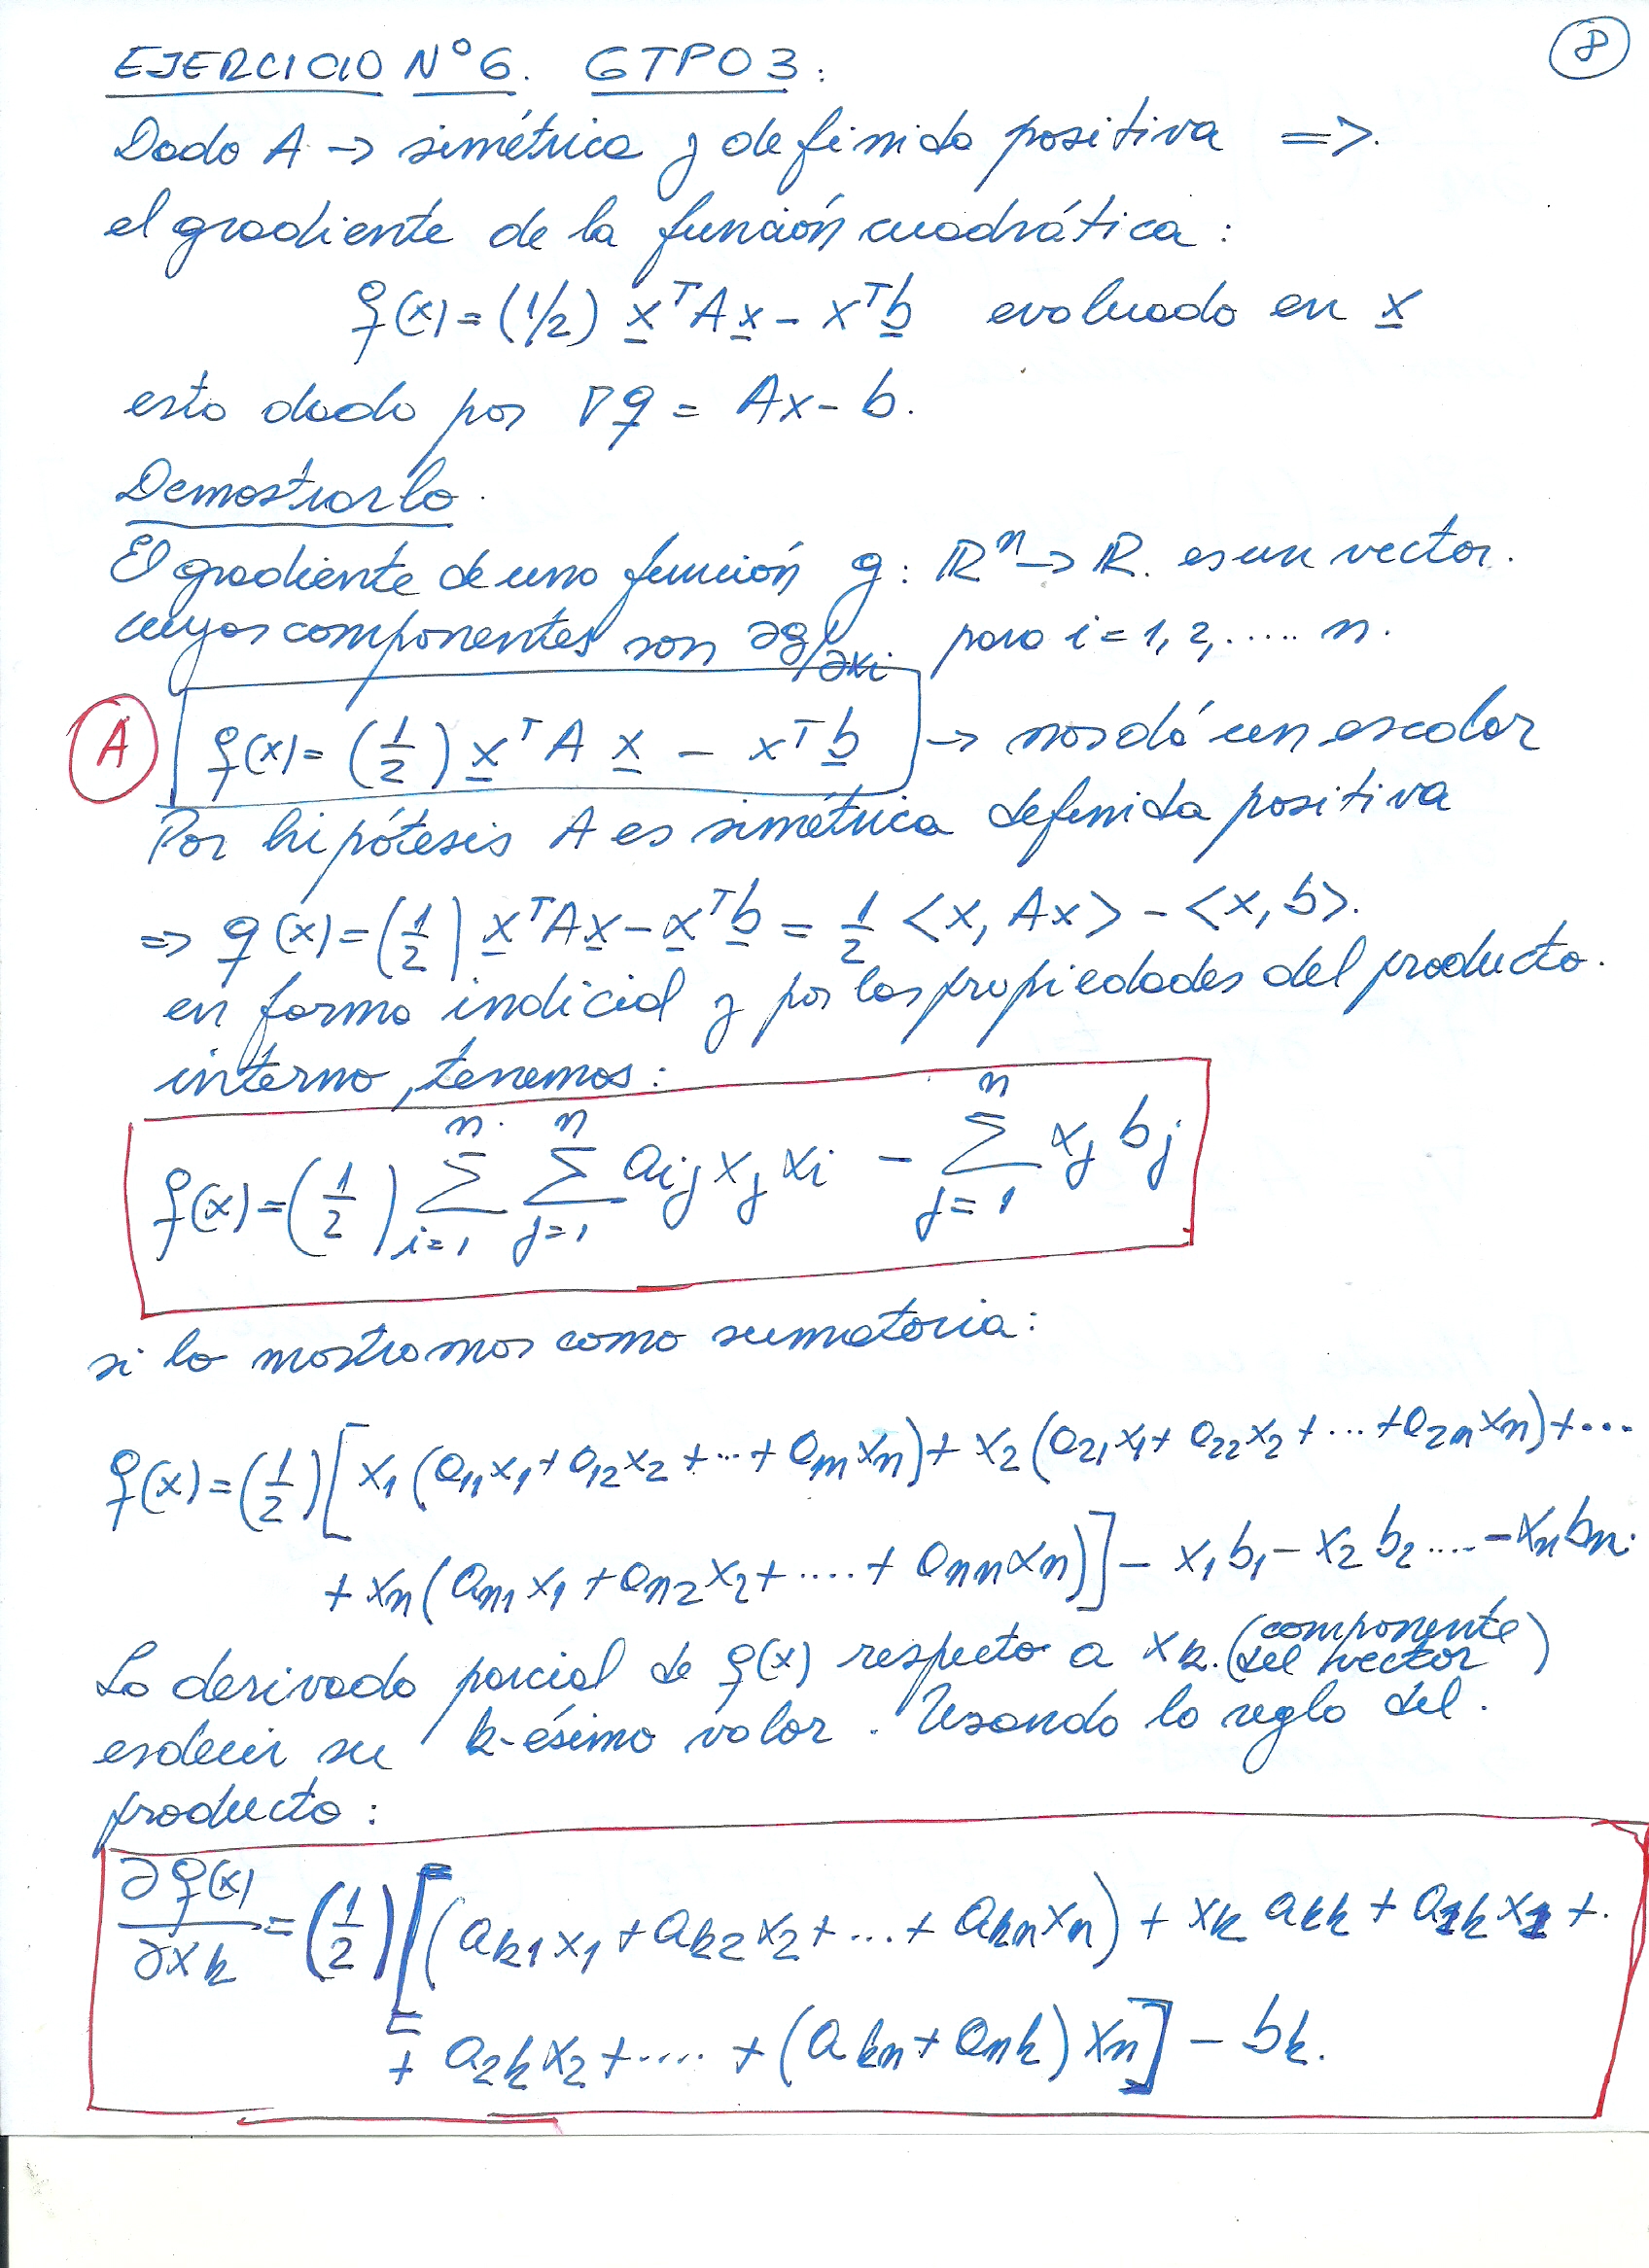 EJERCICIO Nº 6. GTP03:
8
Dado A → simétrica y definida positiva =>.
el gradiente de la función cuadrática:
q(x) = (1/2) x^T A x - x^T b evaluado en x
esta dado por ∇q = Ax - b.
Demostrarlo.
El gradiente de una función g: ℝ^n → ℝ. es un vector.
cuyas componentes son ∂g/∂xi para i = 1, 2, ..... n.
A q(x) = (1/2) x^T A x - x^T b → nos dá un escalar
Por hipótesis A es simétrica definida positiva
=> q(x) = (1/2) x^T A x - x^T b = 1/2 <x, Ax> - <x, b>.
en forma indicial y por las propiedades del producto.
interno, tenemos:
q(x) = (1/2) ∑_{i=1}^{n} ∑_{j=1}^{n} a_ij x_j x_i - ∑_{j=1}^{n} x_j b_j
si lo mostramos como sumatoria:
q(x) = (1/2) [ x1 (a11 x1 + a12 x2 + ... + a1n xn) + x2 (a21 x1 + a22 x2 + ... + a2n xn) + ...
+ xn (an1 x1 + an2 x2 + .... + ann xn) ] - x1 b1 - x2 b2 .... - xn bn.
La derivada parcial de q(x) respecto a xk. (componente del vector)
es decir su k-ésimo valor. Usando la regla del.
producto:
∂q(x)/∂xk = (1/2) [ (ak1 x1 + ak2 x2 + ... + akn xn) + xk akk + a1k x1 + .
+ a2k x2 + .... + (akn + ank) xn ] - bk.